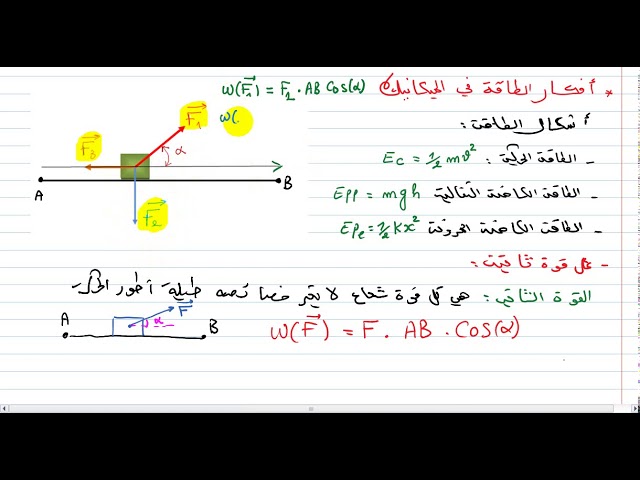 * أفكار الطاقة في الميكانيك
W(F₁) = F₂ . AB Cos(α)
W(
أشكال الطاقة :
- الطاقة الحركية : Ec = 1/2 mv²
- الطاقة الكامنة الثقالية Epp = mgh
- الطاقة الكامنة المرونية Epe = 1/2 Kx²
- عمل قوة ثابتة :
القوة الثابتة : هي كل قوة شعاع لا يتغير خصائصه طيلة أطور الحركة
W(F) = F . AB . Cos(α)
F₁
α
F₃
A
B
F₂
A
F
α
B